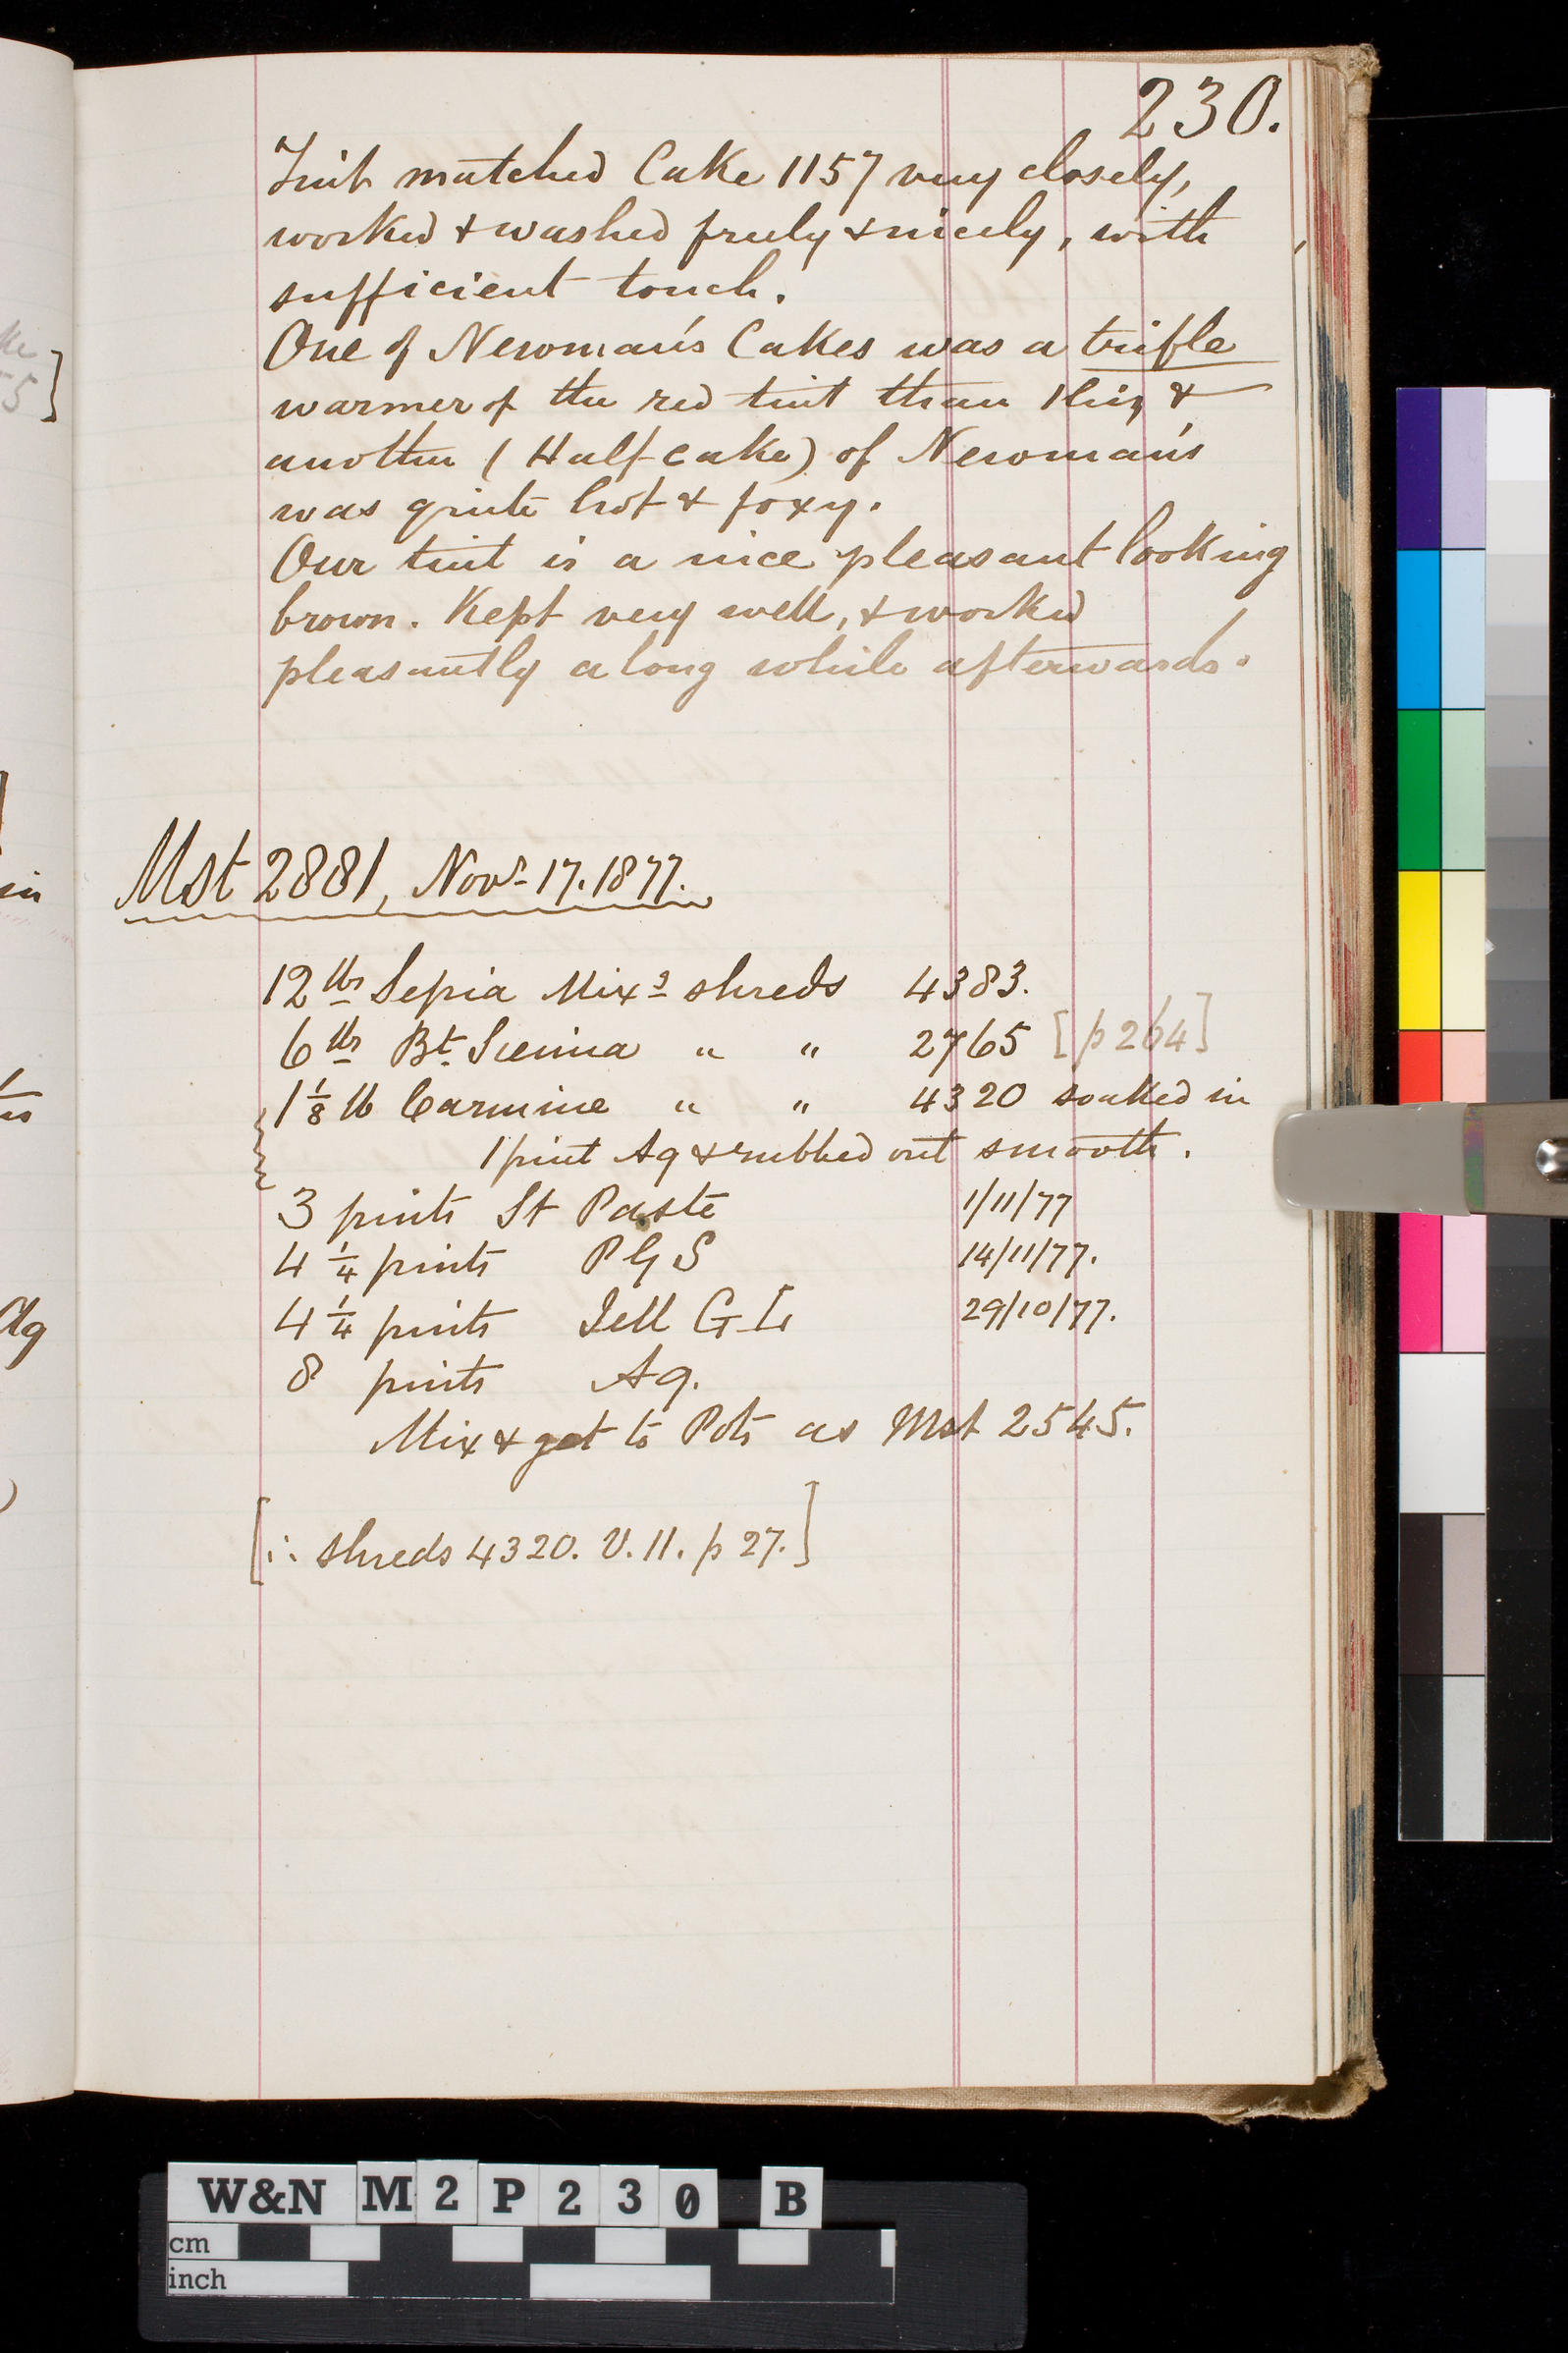 230.
Tint matched Cake 1157 very closely,
worked & washed freely & nicely, with
sufficient touch.
One of Newman's Cakes was a trifle
warmer of the red tint than this, &
another (Half-cake) of Newman's
was quite hot & foxy.
Our tint is a nice pleasant looking
brown. Kept very well, & worked
pleasantly a long while afterwards.
Mst 2881, Novr 17. 1877.
12 lbs Sepia Mixd shreds 4383.
6 lbs Bt Sienna " " 2765 [p 264]
1 1/8 lb Carmine " " 4320 soaked in
1 pint Aq & rubbed out smooth.
3 pints St Paste 1/11/77
4 1/4 pints P G S 14/11/77.
4 1/4 pints Jell G L 29/10/77.
8 pints Aq.
Mix & get to Pots as Mst 2545.
[∴ shreds 4320. V. 11. p 27.]
W&N M2P230 B
cm
inch